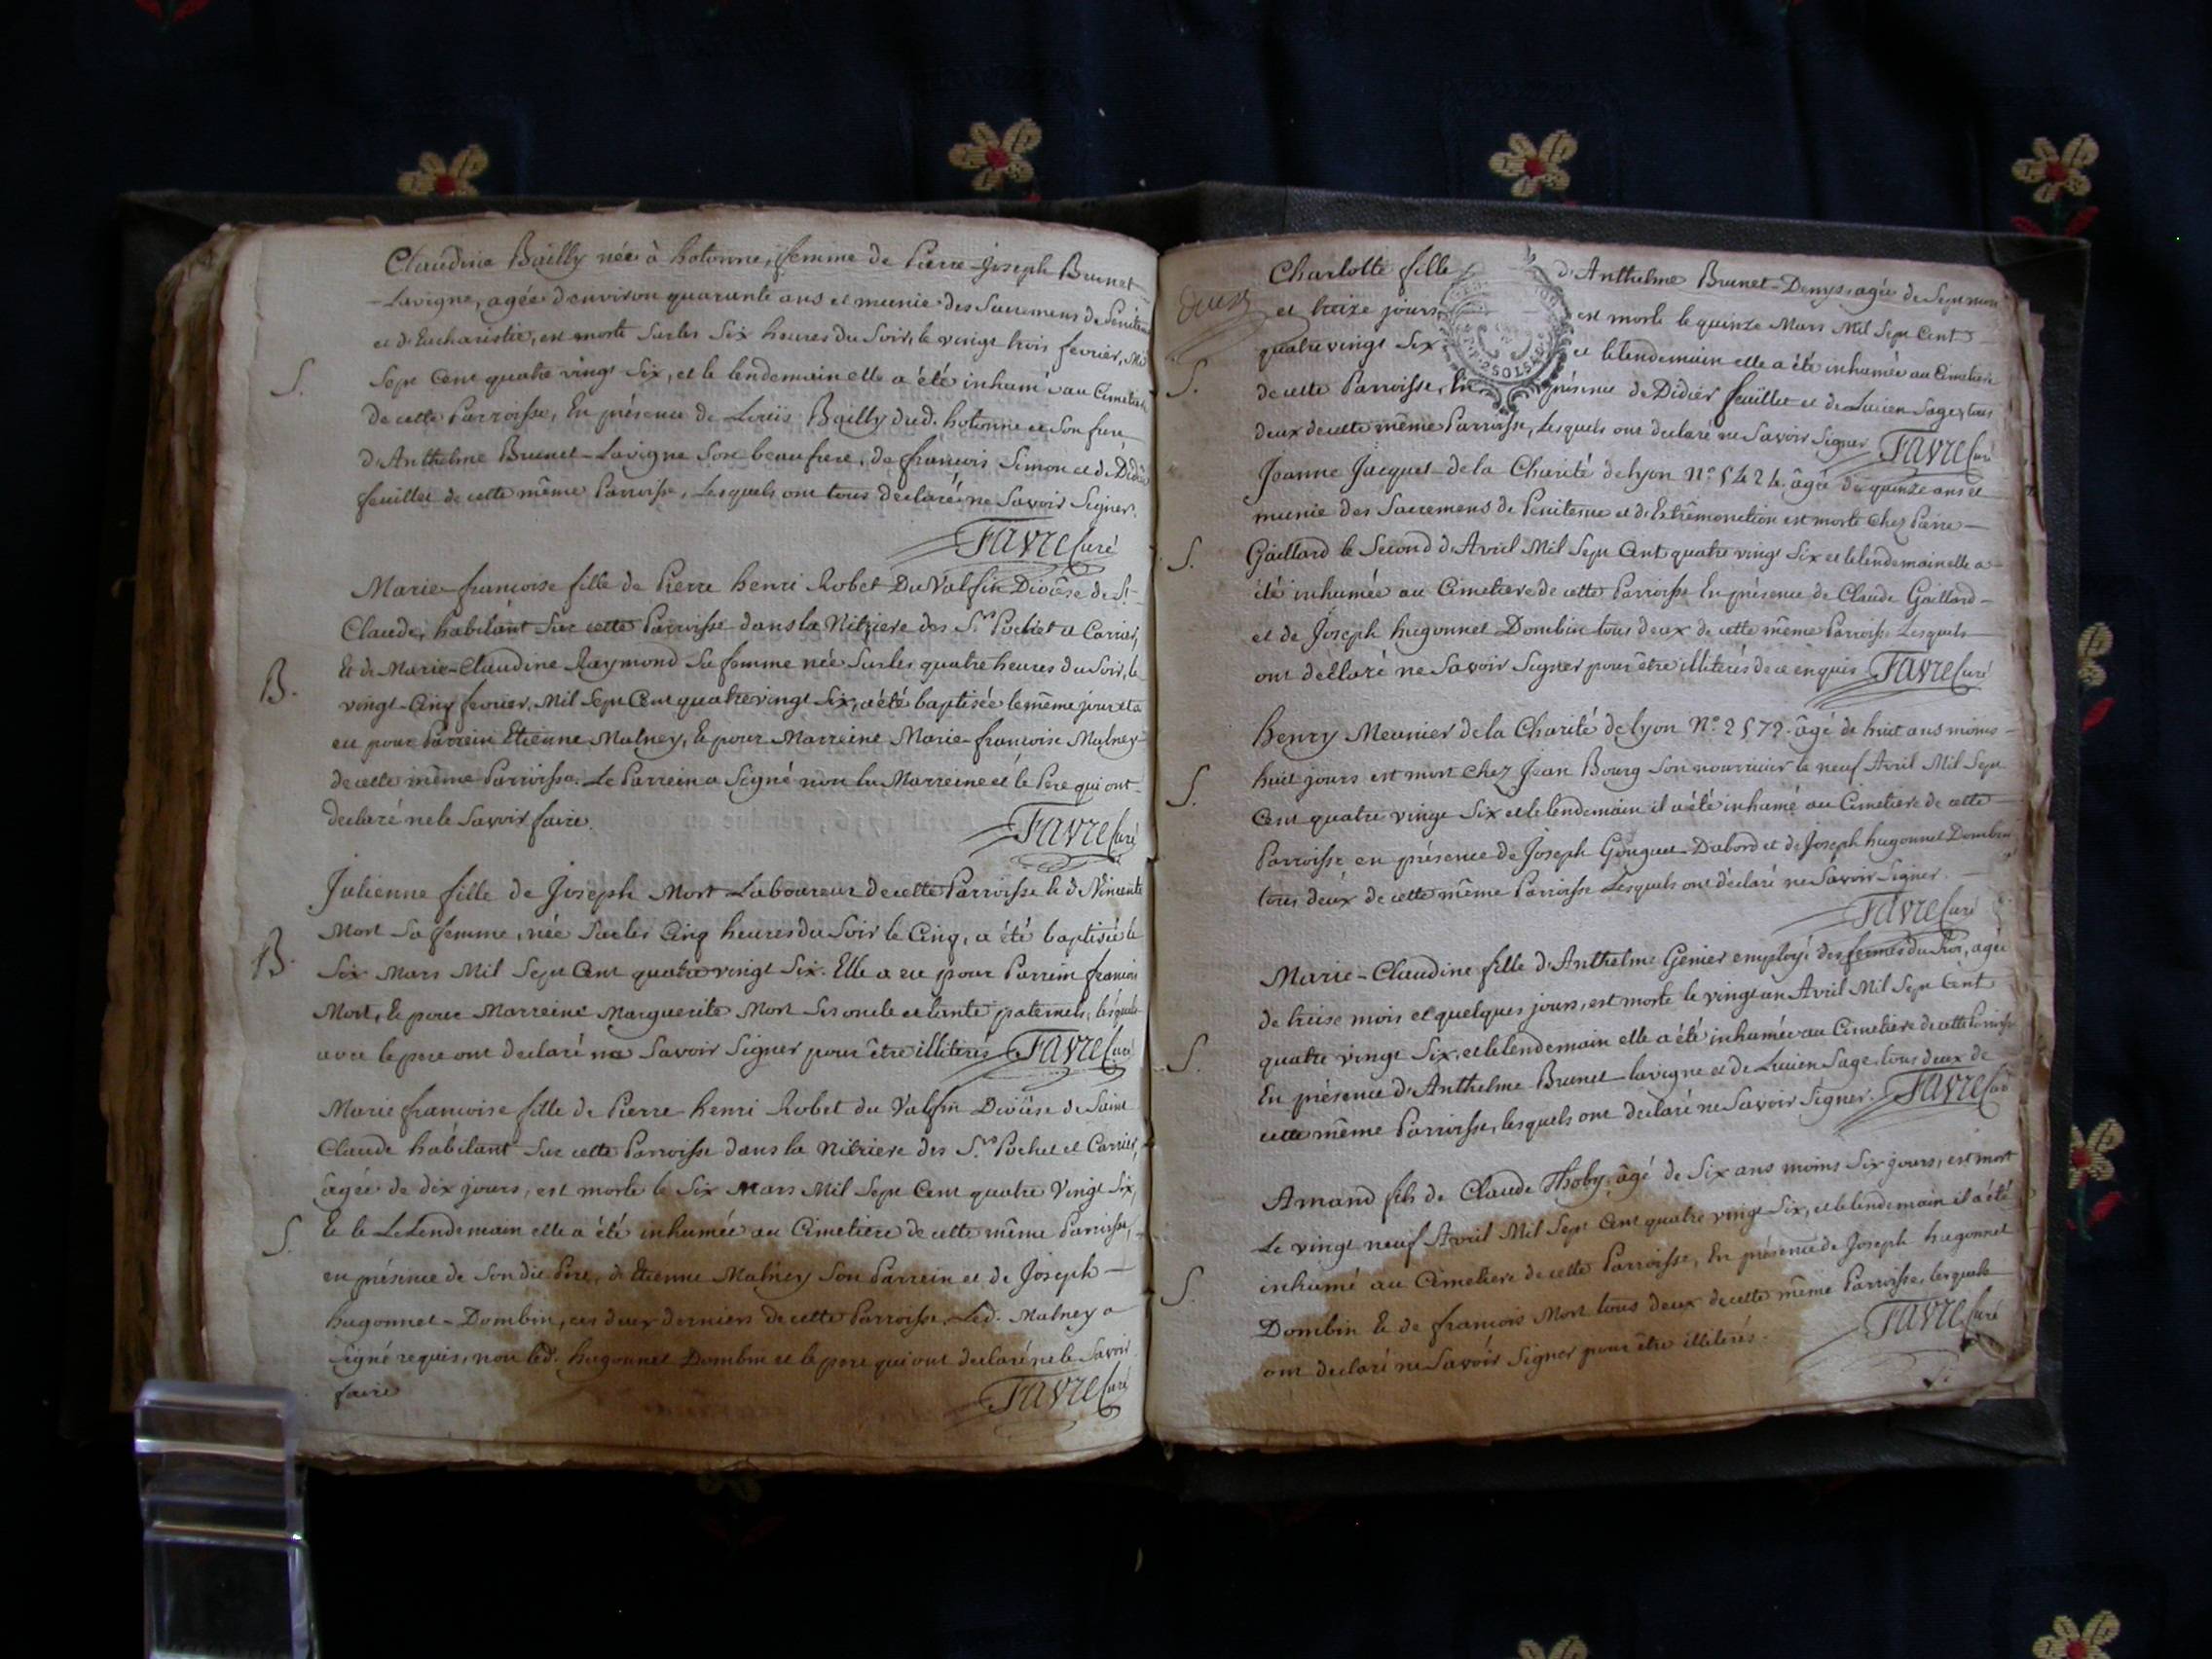 Claudine Bailly née à hotonne, femme de Pierre-Joseph Brunet
-Lavigne, agée d'environ quarante ans et munie des Sacremens de Penitence
et d'Eucharistie, est morte sur les Six heures du Soir, le vingt trois fevrier, Mil
S. Sept Cent quatre vingt Six, et le lendemain elle a été inhumée au Cimetiere
de cette Parroisse, En présence de Louis Bailly dud. hotonne son frere
d'Anthelme Brunet-Lavigne son beaufrere, de françois Simon et de Didier
feuillet de cette même Parroisse, Lesquels ont tous declaré ne Savoir Signer.
FAVRE Curé
Marie-françoise fille de Pierre henri Robet Du Valfin Diocèse de St
Claude, habitant Sur cette Parroisse dans la Nitriere des Srs Pochet et Carrier,
B. Et de Marie-Claudine Raymond Sa femme née Sur les quatre heures du Soir, le
vingt-Cinq fevrier, Mil Sept Cent quatre vingt Six, a été baptisée le même jour et a
eu pour Parrein Etienne Malney, Et pour Marreine Marie-françoise Malney
de cette même Parroisse. Le Parrein a Signé non la Marreine et le Pere qui ont
declaré ne le Savoir faire.
FAVRE Curé
Julienne fille de Joseph Mort Laboureur de cette Parroisse Et de Vincente
Mort Sa femme, née Sur les Cinq heures du Soir le Cinq, a été baptisée le
B. Six Mars Mil Sept Cent quatre vingt Six. Elle a eu pour Parrein françois
Mort, Et pour Marreine Marguerite Mort Ses oncle et tante paternels, lesquels
avec le pere ont declaré ne Savoir Signer pour être illiterés FAVRE Curé
Marie françoise fille de Pierre henri Robet du Valfin Diocèse de Saint
Claude habitant Sur cette Parroisse dans la Nitriere des Srs Pochet et Carrier,
agée de dix jours, est morte le Six Mars Mil Sept Cent quatre Vingt Six,
S. Et le Lendemain elle a été inhumée au Cimetiere de cette même Parroisse,
en présence de Son dit Pere, d'Etienne Malney Son Parrein et de Joseph
hugonnet-Dombin, ces deux derniers de cette Parroisse. Led. Malney a
Signé requis, non led. hugonnet Dombin et le pere qui ont declaré ne le Savoir
faire
FAVRE Curé
Charlotte fille d'Anthelme Brunet-Demys agée de Sept mois
et treize jours, est morte le quinze Mars Mil Sept Cent
quatre vingt Six et le lendemain elle a été inhumée au Cimetiere
S. de cette Parroisse, En présence de Didier feuillet et de Lucien Sage, tous
deux de cette même Parroisse, Lesquels ont declaré ne Savoir Signer FAVRE Curé
Jeanne Jacques de la Charité de lyon N° 5424. âgée de quinze ans et
munie des Sacremens de Penitence et d'Extrêmonction est morte chez Pierre
S. Gaillard le Second d'Avril Mil Sept Cent quatre vingt Six et le lendemain elle a
été inhumée au Cimetiere de cette Parroisse En présence de Claude Gaillard
et de Joseph hugonnet Dombin tous deux de cette même Parroisse Lesquels
ont déclaré ne Savoir Signer pour être illiterés de ce enquis FAVRE Curé
henry Meunier de la Charité de lyon N° 2572. âgé de huit ans moins
S. huit jours est mort chez Jean Bourg Son nourricier le neuf Avril Mil Sept
Cent quatre vingt Six et le lendemain il a été inhumé au Cimetiere de cette
Parroisse en présence de Joseph Gouguet Dubord et de Joseph hugonnet Dombin
tous deux de cette même Parroisse Lesquels ont déclaré ne Savoir Signer.
FAVRE Curé
Marie-Claudine fille d'Anthelme Genier employé des fermes du Roi, agée
de treise mois et quelques jours, est morte le vingt un Avril Mil Sept Cent
S. quatre vingt Six, et le lendemain elle a été inhumée au Cimetiere de cette Parroisse
En présence d'Anthelme Brunet-lavigne et de Lucien Sage, tous deux de
cette même Parroisse, lesquels ont declaré ne Savoir Signer. FAVRE Curé
Amand fils de Claude Thoby, âgé de Six ans moins Six jours, est mort
Le vingt neuf Avril Mil Sept Cent quatre vingt Six, et le lendemain il a été
S. inhumé au Cimetiere de cette Parroisse, En présence de Joseph hugonnet
Dombin Et de françois Mort tous deux de cette même Parroisse, lesquels
ont declaré ne Savoir Signer pour être illiterés.
FAVRE Curé